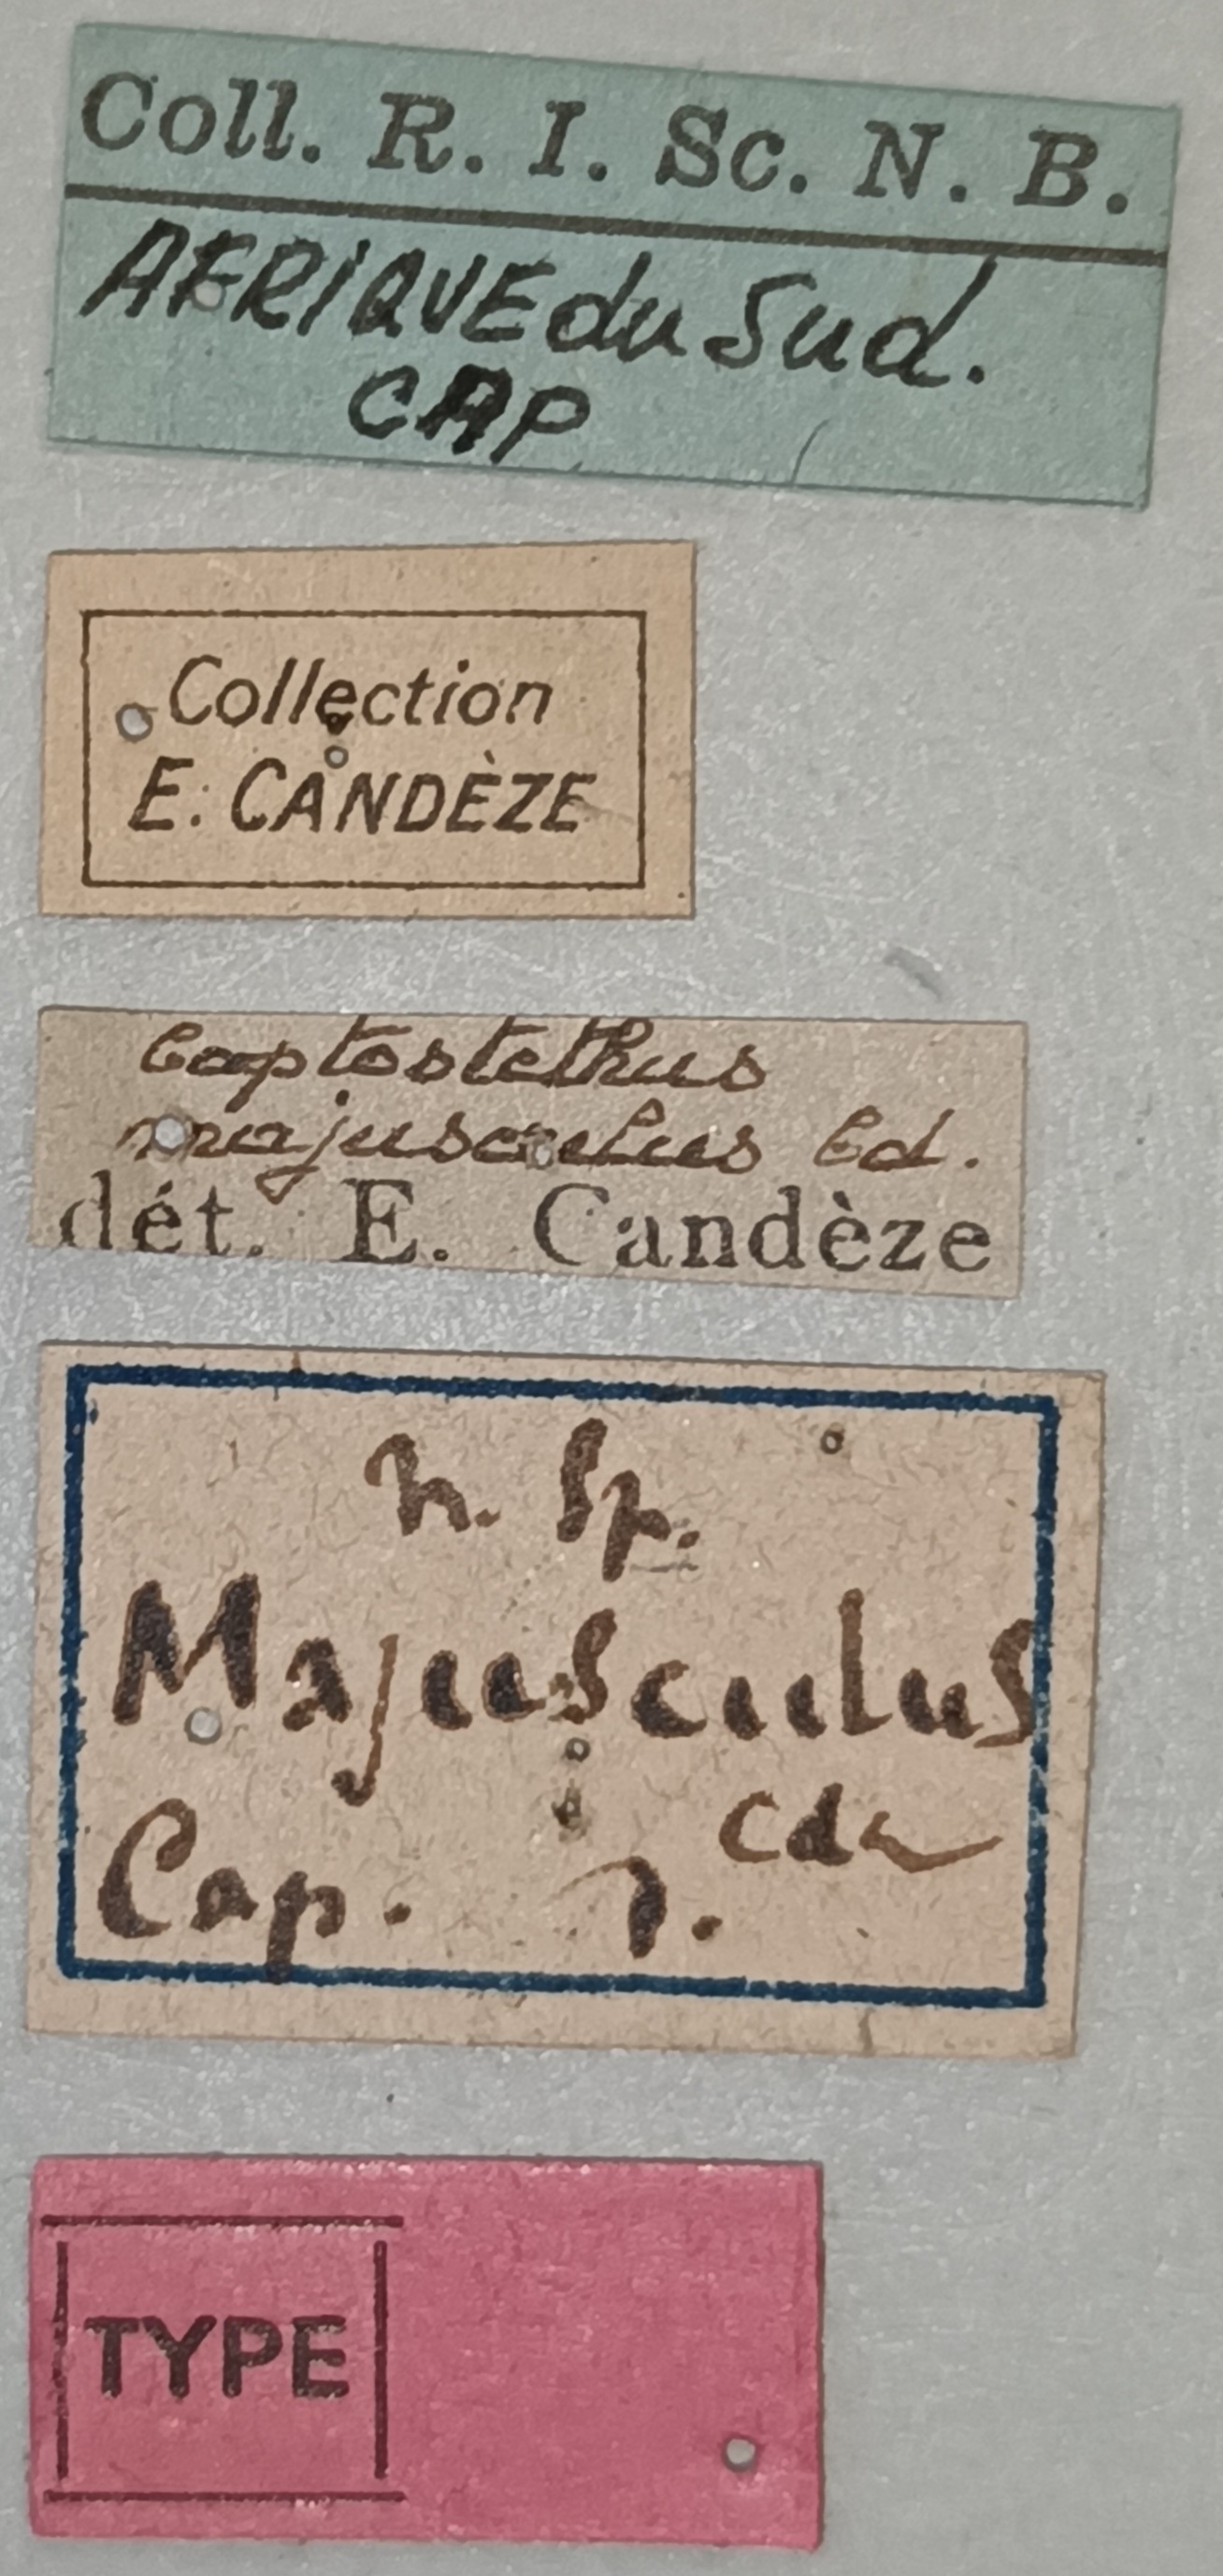 Coll. R. I. Sc. N. B.
AFRIQUE du Sud.
CAP
Collection
E. CANDÈZE
Captostethus
majusculus Cd.
dét. E. Candèze
n. Sp.
Majusculus
Cdz
Cap. 7.
TYPE